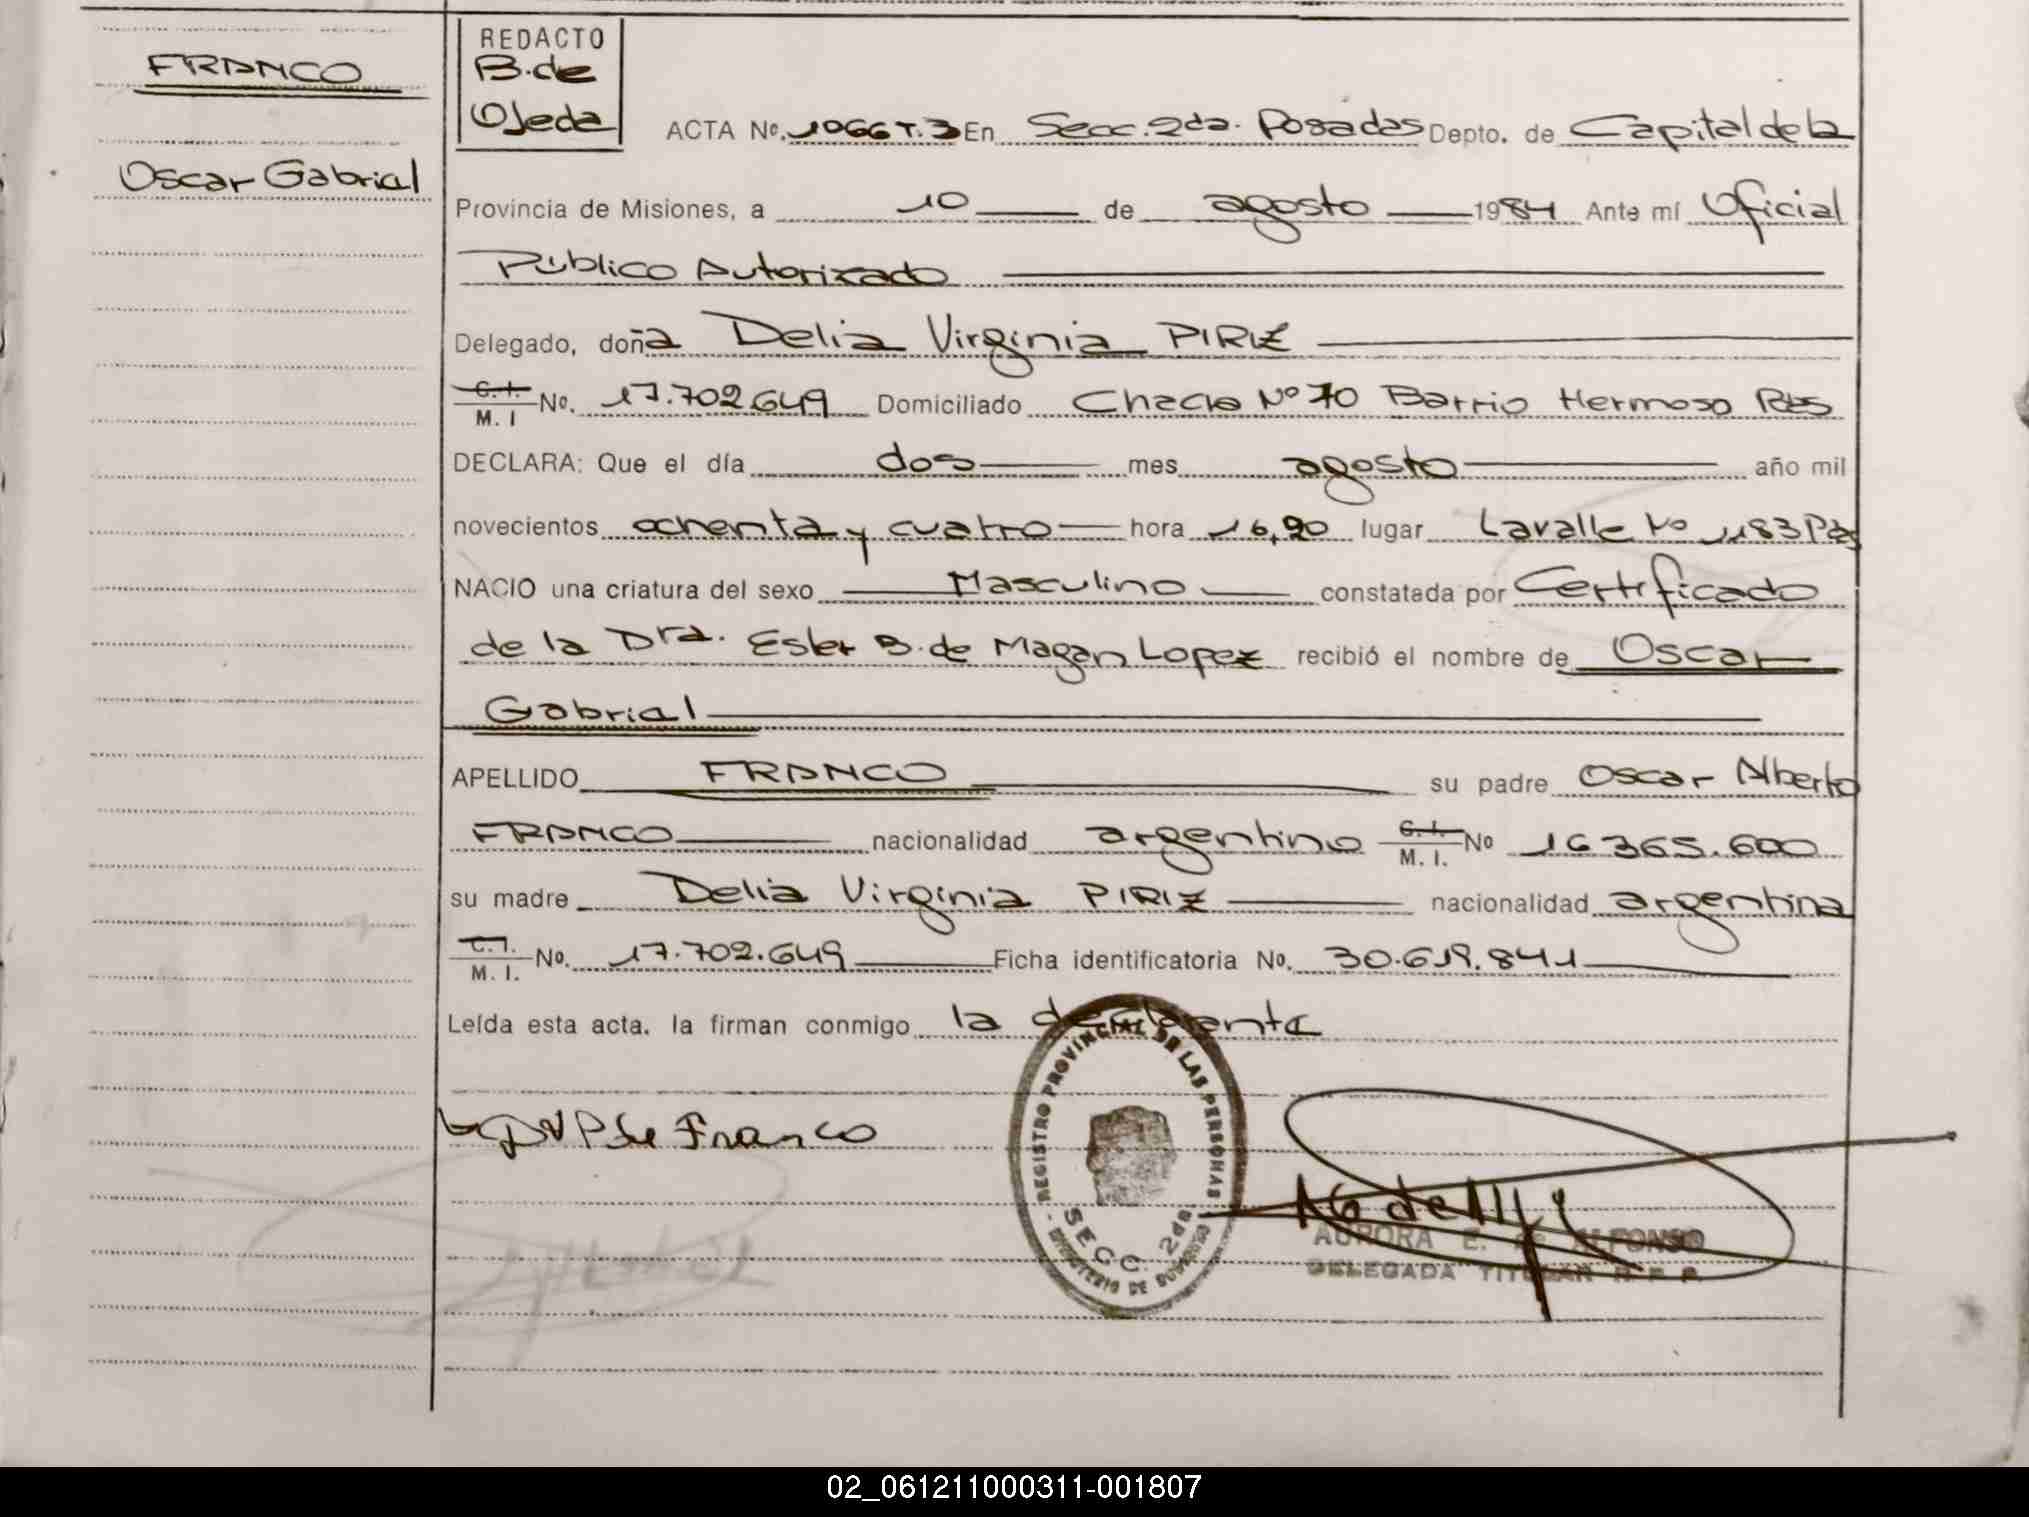 FRANCO
Oscar Gabrial
REDACTO
B. de
Ojeda
ACTA Nº. 1066 T. 3 En Secc. 2da. Posadas Depto. de Capital de la
Provincia de Misiones, a 10 de agosto 1984 Ante mí Oficial
Público Autorizado
Delegado, doña Delia Virginia PIRIZ
C. I.
M. I No. 17.702.649 Domiciliado Chacra Nº 70 Barrio Hermoso Pds
DECLARA: Que el día dos mes agosto año mil
novecientos ochenta y cuatro hora 16,20 lugar Lavalle Nº 1183 Pds
NACIO una criatura del sexo Masculino constatada por Certificado
de la Dra. Ester B. de Magan Lopez recibió el nombre de Oscar
Gabrial
APELLIDO FRANCO su padre Oscar Alberto
FRANCO nacionalidad argentino C. I. M. I. Nº 16 365.600
su madre Delia Virginia PIRIZ nacionalidad argentina
C. I.
M. I. No. 17.702.649 Ficha identificatoria No. 30.619.841
Leída esta acta, la firman conmigo la declarante
DVP de Franco
REGISTRO PROVINCIAL DE LAS PERSONAS
SECC. 2da
MINISTERIO DE GOBIERNO
AURORA E. de ALFONSO
DELEGADA TITULAR R. P. P.
02_061211000311-001807